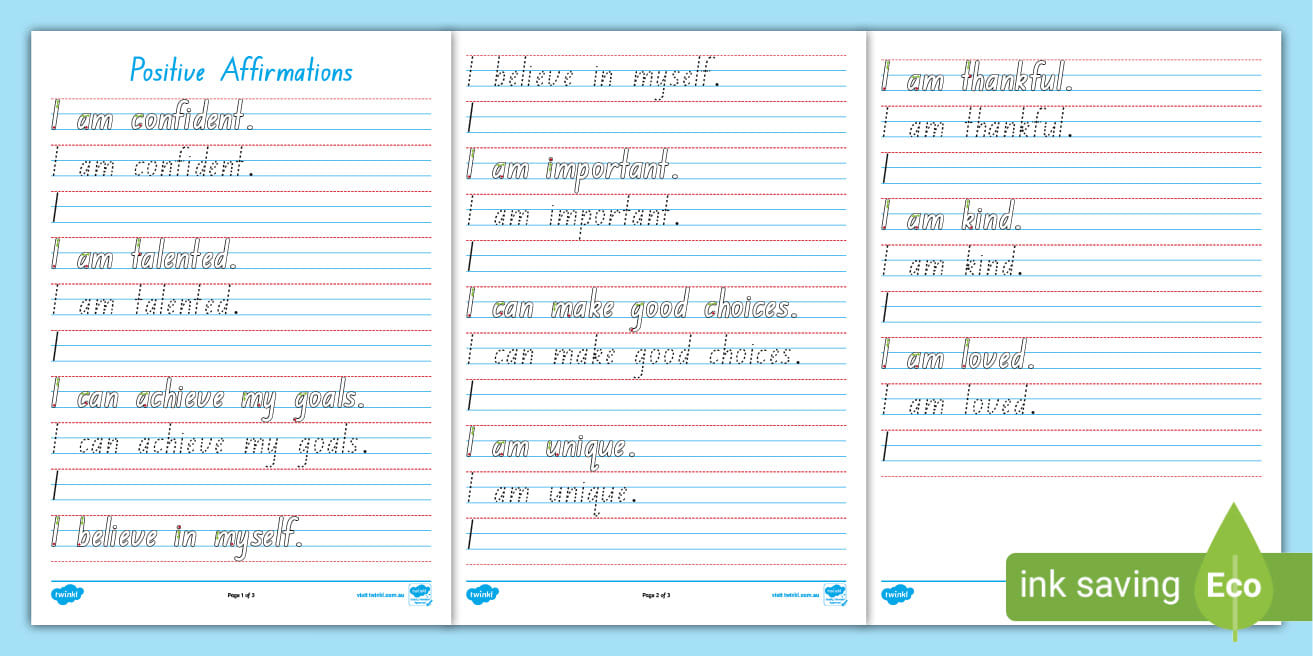 Positive Affirmations
I am confident.
I am confident.
I
I am talented.
I am talented.
I
I can achieve my goals.
I can achieve my goals.
I
I believe in myself.
twinkl
Page 1 of 3
visit twinkl.com.au
I believe in myself.
I
I am important.
I am important.
I
I can make good choices.
I can make good choices.
I
I am unique.
I am unique.
I
twinkl
Page 2 of 3
visit twinkl.com.au
I am thankful.
I am thankful.
I
I am kind.
I am kind.
I
I am loved.
I am loved.
I
twinkl
ink saving Eco